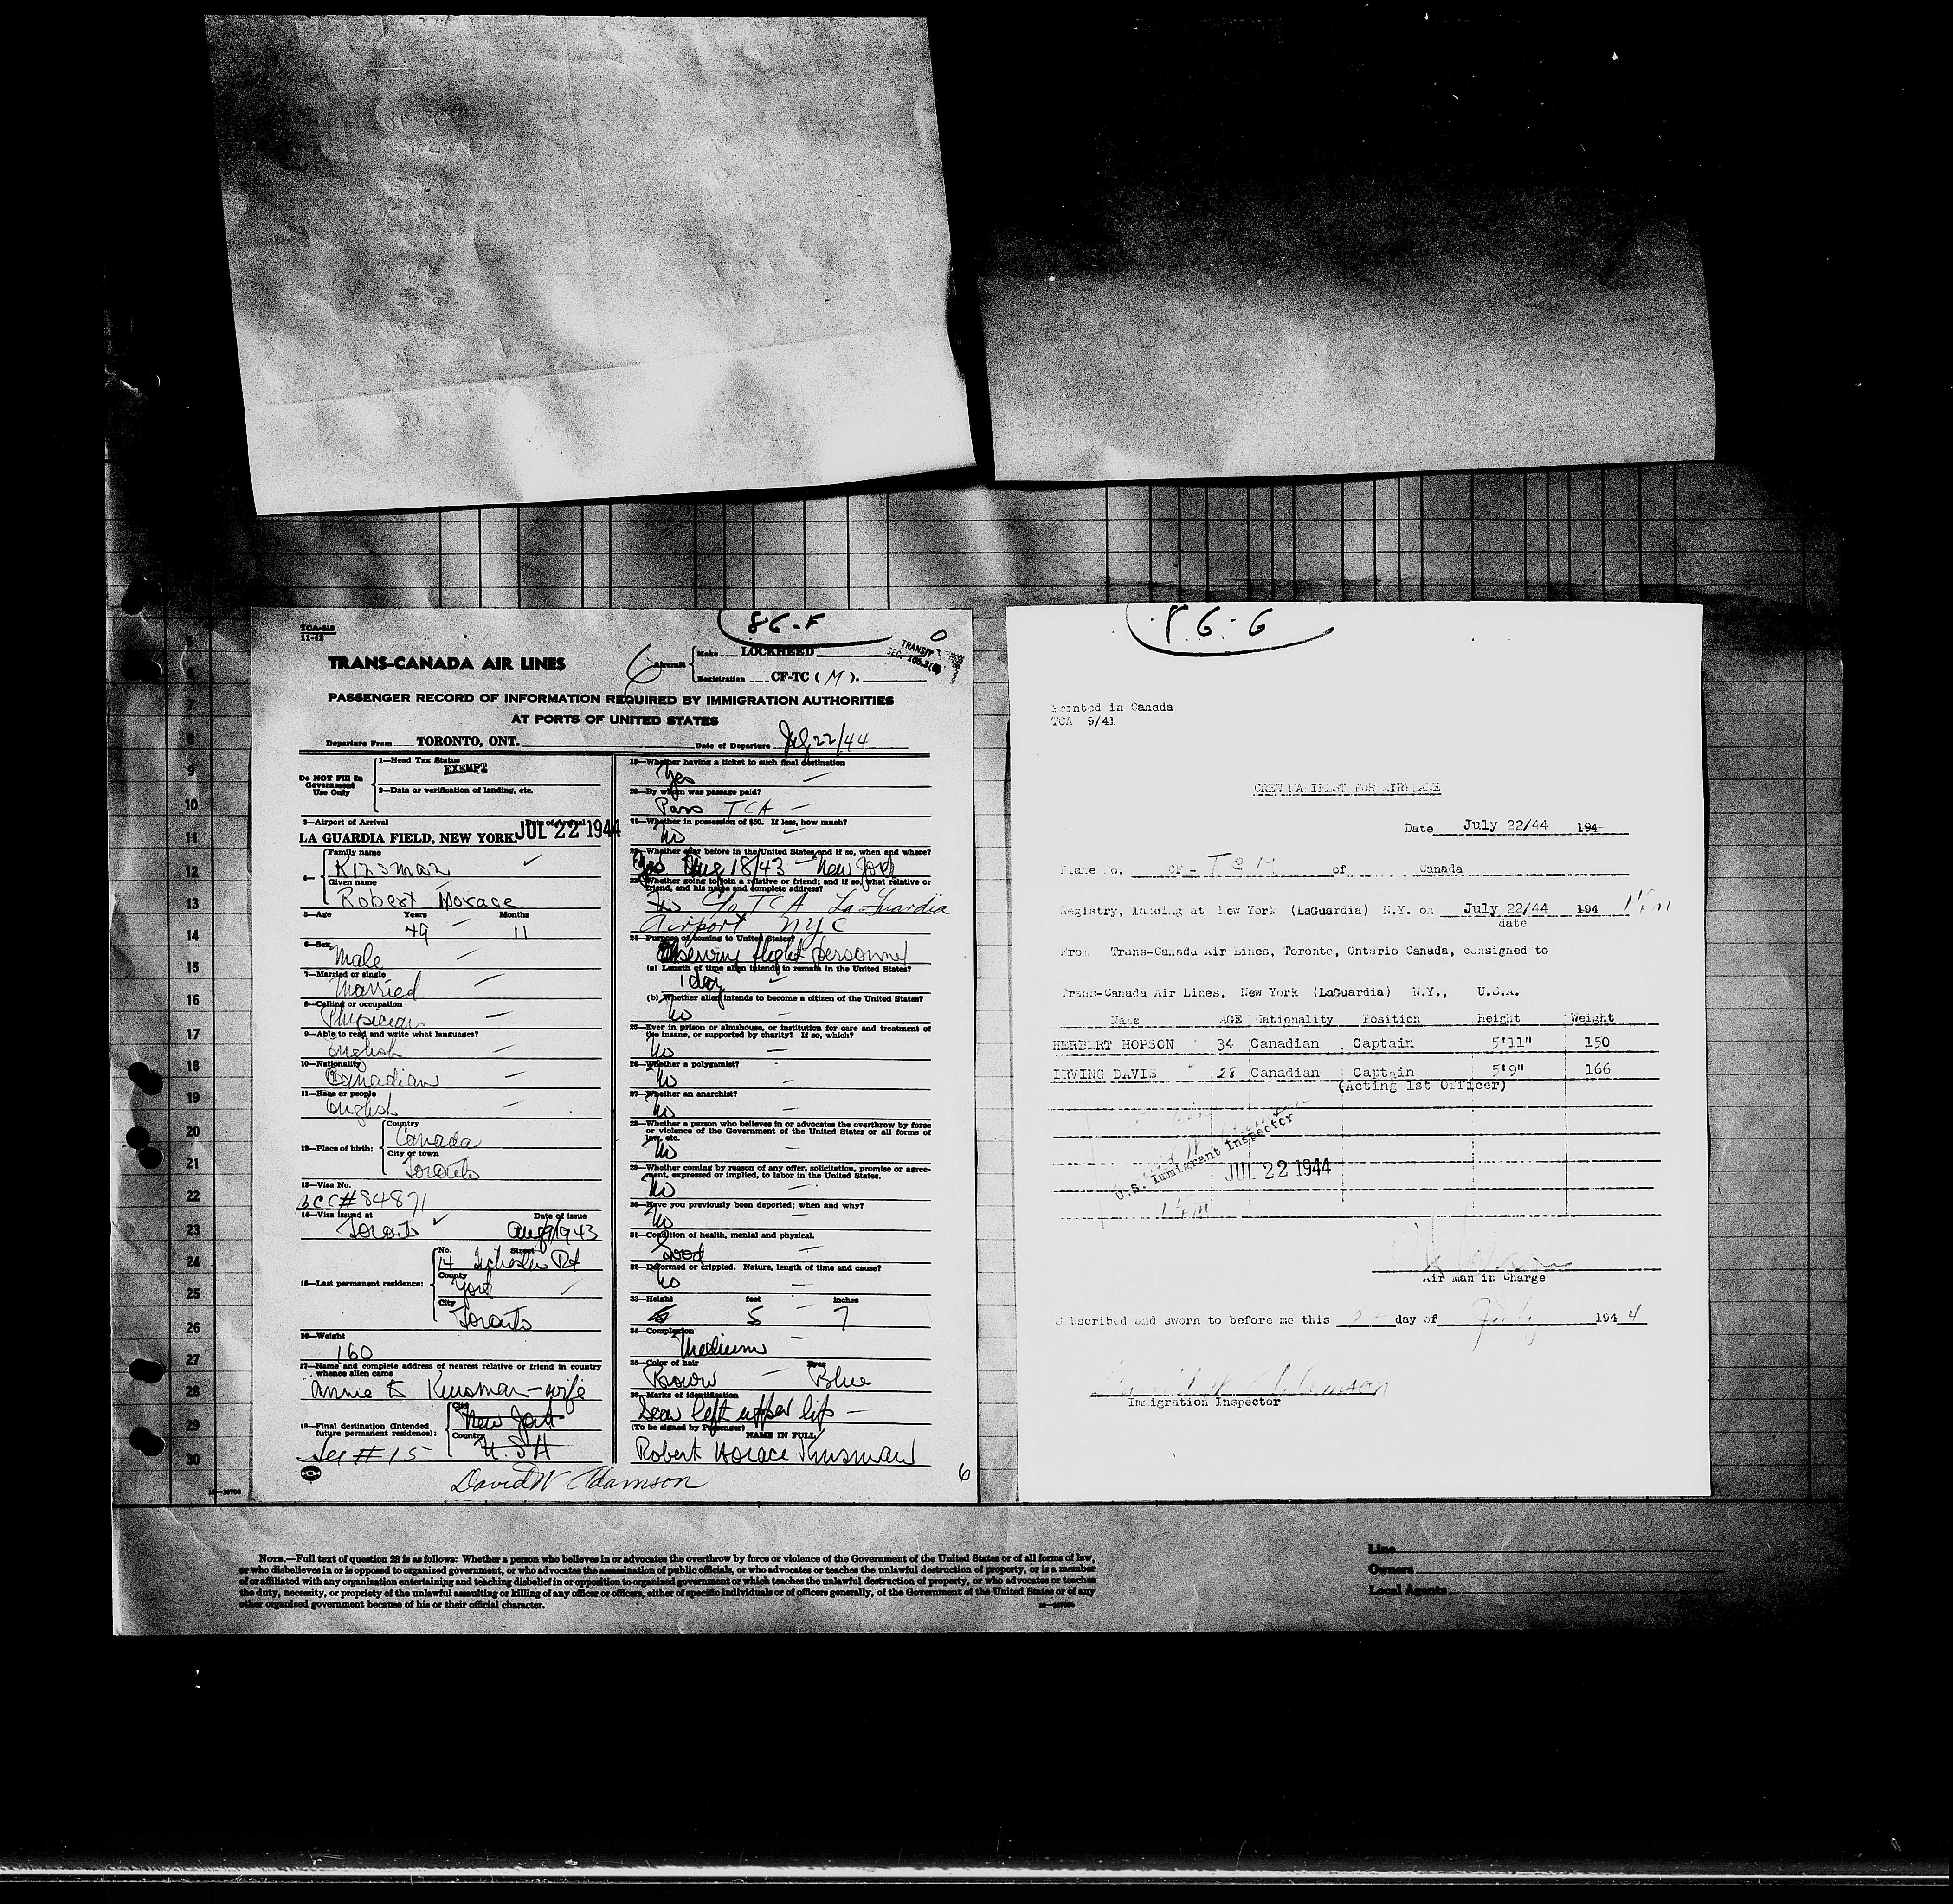 5
6
7
8
9
10
11
12
13
14
15
16
17
18
19
20
21
22
23
24
25
26
27
28
29
30
TCA-
11-43
86-F
0
TRANSIT
TRANS-CANADA AIR LINES
6
Aircraft
Make LOCKHEED
Registration CF-TC ( M ).
PASSENGER RECORD OF INFORMATION REQUIRED BY IMMIGRATION AUTHORITIES
AT PORTS OF UNITED STATES
Departure From TORONTO, ONT. Date of Departure July 22/44
Do NOT Fill In
Government
Use Only
1—Head Tax Status
EXEMPT
2—Data or verification of landing, etc.
3—Airport of Arrival Date of Arrival
LA GUARDIA FIELD, NEW YORK. JUL 22 1944
4—
Family name
Kinsman
Given name
Robert Horace
5—Age Years Months
49 11
6—Sex
Male
7—Married or single
Married
8—Calling or occupation
Physician
9—Able to read and write what languages?
English
10—Nationality
Canadian
11—Race or people
English
12—Place of birth:
Country
Canada
City or town
Toronto
13—Visa No.
BCC#84871
14—Visa issued at Date of issue
Toronto Aug 9/1943
15—Last permanent residence:
No. Street
14 Rd
County
York
City
Toronto
16—Weight
160
17—Name and complete address of nearest relative or friend in country
whence alien came
Annie E Kinsman - wife
18—Final destination (Intended
future permanent residence):
City
New York
Country
U.S.A
See #15
19—Whether having a ticket to such final destination
Yes
20—By whom was passage paid?
Pass TCA
21—Whether in possession of $50. If less, how much?
No
22—Whether ever before in the United States and if so, when and where?
Yes Aug 18/43 - New York
23—Whether going to join a relative or friend; and if so, what relative or
friend, and his name and complete address?
No c/o TCA La Guardia
Airport NYC
24—Purpose of coming to United States?
Observing flight personnel
(a) Length of time alien intends to remain in the United States?
1 day
(b) Whether alien intends to become a citizen of the United States?
No
25—Ever in prison or almshouse, or institution for care and treatment of
the insane, or supported by charity? If so, which?
No
26—Whether a polygamist?
No
27—Whether an anarchist?
No
28—Whether a person who believes in or advocates the overthrow by force
or violence of the Government of the United States or all forms of
law, etc.
No
29—Whether coming by reason of any offer, solicitation, promise or agree-
ment, expressed or implied, to labor in the United States.
No
30—Have you previously been deported; when and why?
No
31—Condition of health, mental and physical.
Good
32—Deformed or crippled. Nature, length of time and cause?
No
33—Height feet inches
5 7
34—Complexion
Medium
35—Color of hair Eyes
Brown - Blue
36—Marks of identification
Scar left upper lip -
(To be signed by Passenger) NAME IN FULL
Robert Horace Kinsman
David W Adamson
6
86-G
Printed in Canada
TCA 9/41
CREW MANIFEST FOR AIRPLANE
Date July 22/44 194
Plane No. CF - TCM of Canada
Registry, landing at New York (LaGuardia) N.Y. on July 22/44 194
date
From Trans-Canada Air Lines, Toronto, Ontario Canada, consigned to
Trans-Canada Air Lines, New York (LaGuardia) N.Y., U.S.A.
Name AGE Nationality Position Height Weight
HERBERT HOPSON 34 Canadian Captain 5'11" 150
IRVING DAVIS 28 Canadian Captain 5'9" 166
(Acting 1st Officer)
U.S. Immigrant Inspector
JUL 22 1944
Air Man in Charge
Subscribed and sworn to before me this 22 day of July 194 4
Immigration Inspector
NOTE.—Full text of question 28 is as follows: Whether a person who believes in or advocates the overthrow by force or violence of the Government of the United States or of all forms of law,
or who disbelieves in or is opposed to organized government, or who advocates the assassination of public officials, or who advocates or teaches the unlawful destruction of property, or is a member
of or affiliated with any organization entertaining and teaching disbelief in or opposition to organized government or which teaches the unlawful destruction of property, or who advocates or teaches
the duty, necessity, or propriety of the unlawful assaulting or killing of any officer or officers, either of specific individuals or of officers generally, of the Government of the United States or of any
other organized government because of his or their official character.
Line
Owners
Local Agents